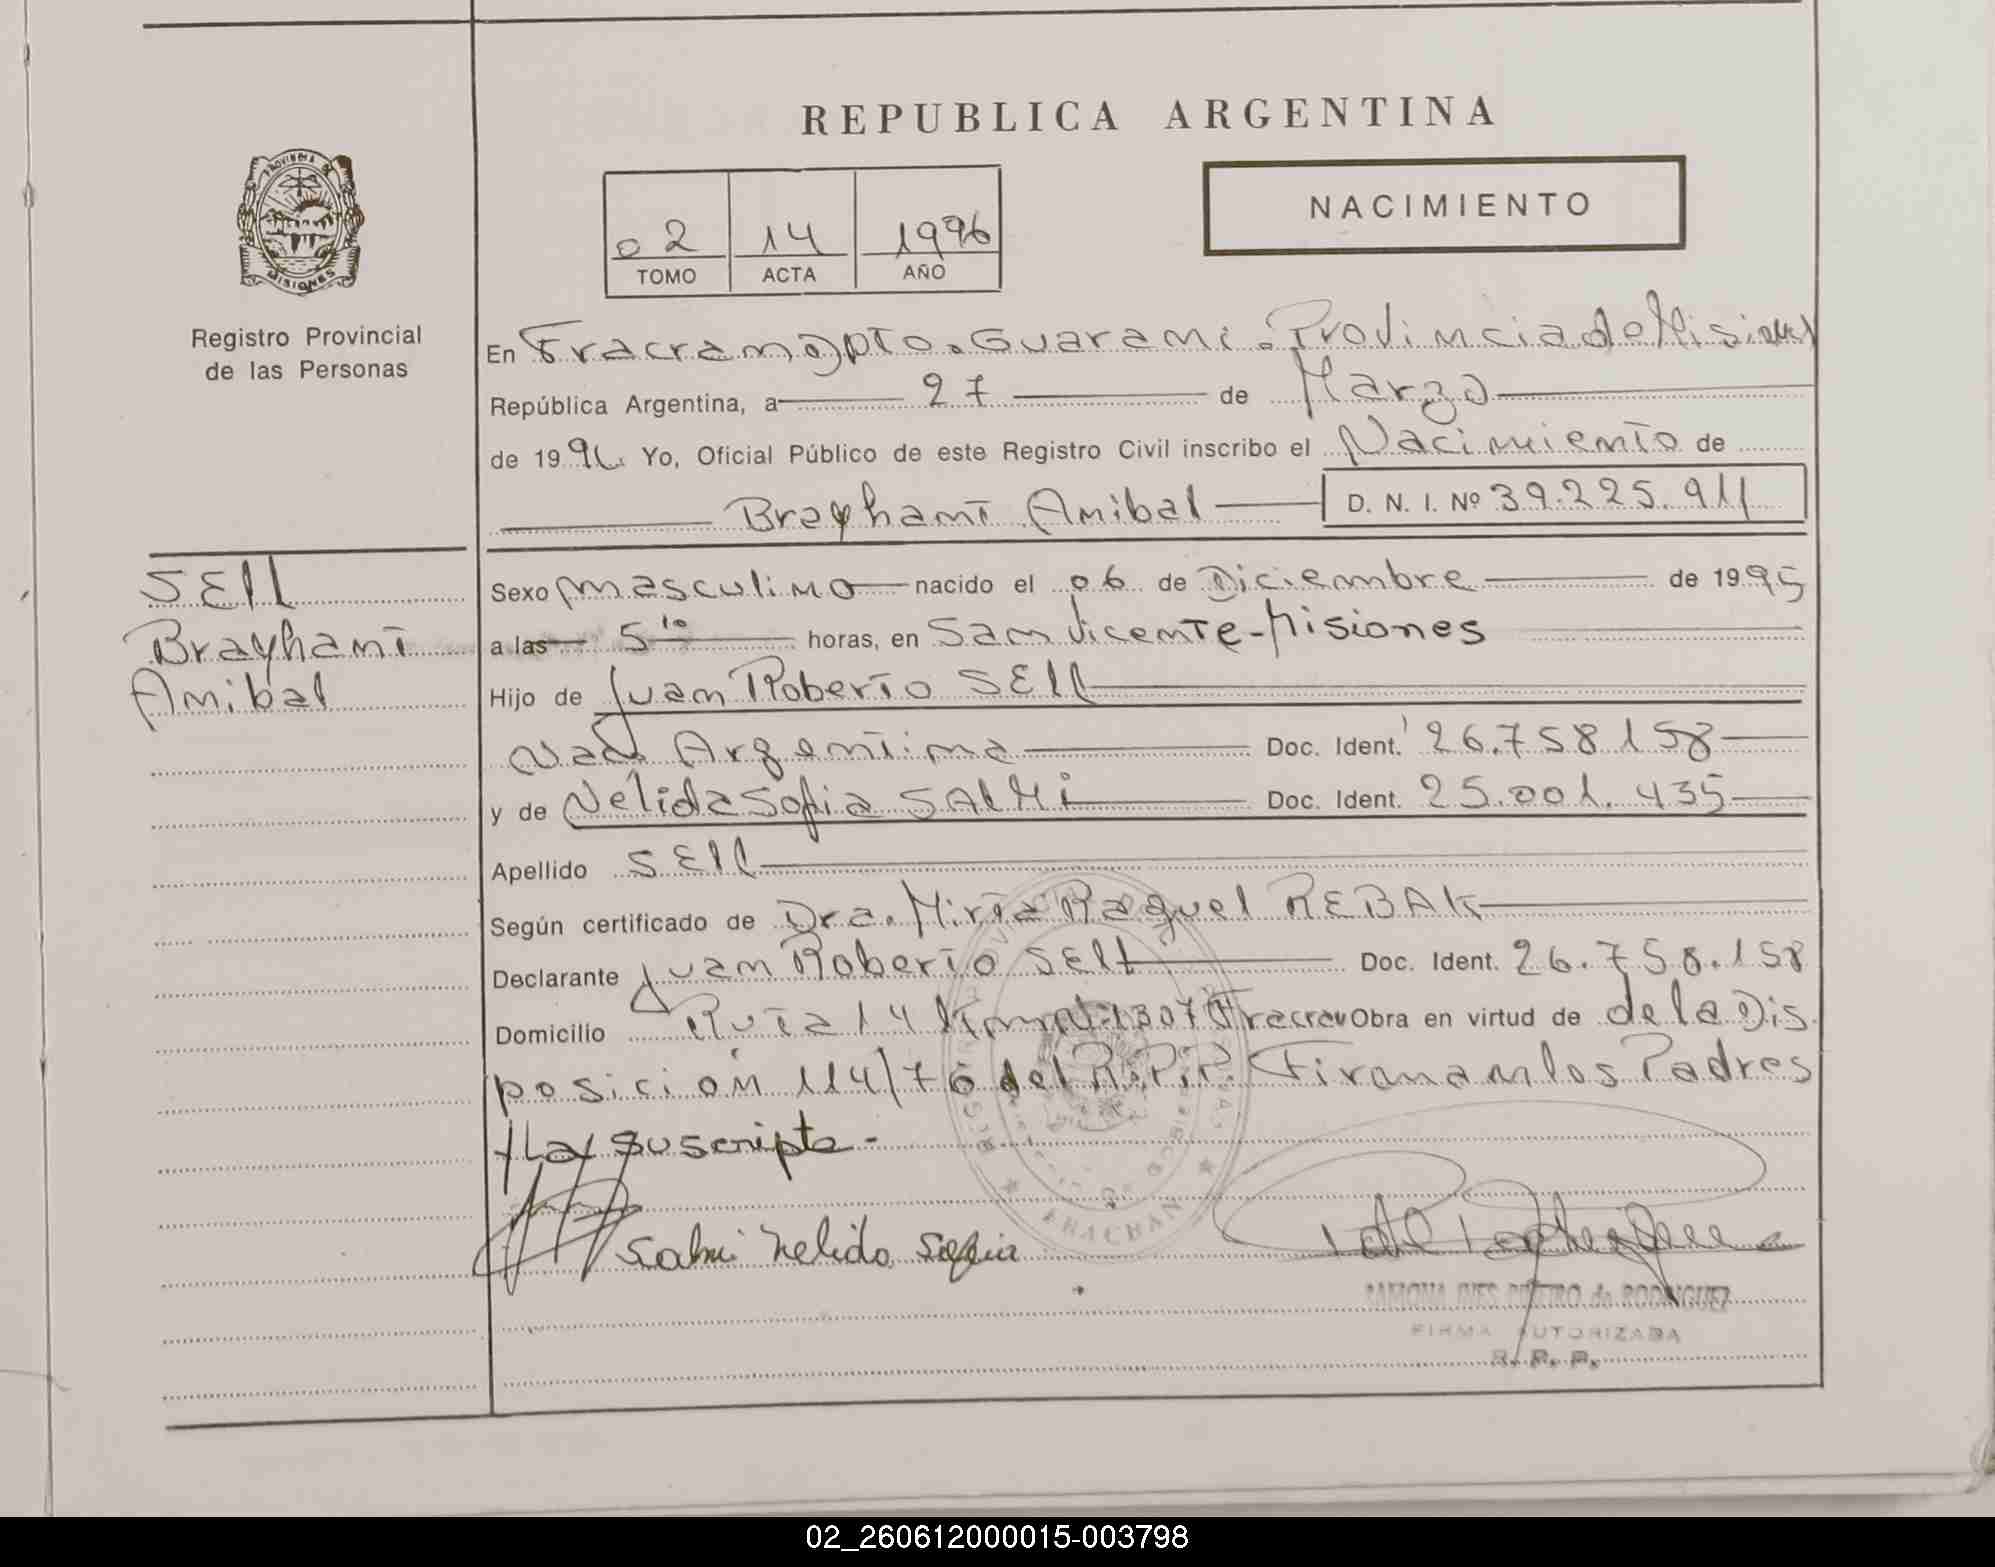 REPUBLICA ARGENTINA
PROVINCIA DE
MISIONES
Registro Provincial
de las Personas
02 14 1996
TOMO ACTA AÑO
NACIMIENTO
En Fracran Dpto. Guarani. Provincia de Misiones
República Argentina, a 27 de Marzo
de 1996. Yo, Oficial Público de este Registro Civil inscribo el Nacimiento de
Brayhant Anibal D. N. I. Nº 39.225.911
SEll
Brayhant
Anibal
Sexo masculino nacido el 06 de Diciembre de 1995
a las 5 10 horas, en San Vicente-Misiones
Hijo de Juan Roberto SEll
Nac. Argentina Doc. Ident. 26.758.158
y de Nelida Sofia SAlMi Doc. Ident. 25.001.435
Apellido SEll
Según certificado de Dra. Mirta Raquel REBAK
Declarante Juan Roberto SEll Doc. Ident. 26.758.158
Domicilio Ruta 14 1307 Fracran Obra en virtud de de la Dis
posición 114/76 del R.P.P. Firman los Padres
y La suscripta-
Salmi Nelida Sofia
RAMONA INES de RODRIGUEZ
FIRMA AUTORIZADA
R. P. P.
FRACRAN
02_260612000015-003798